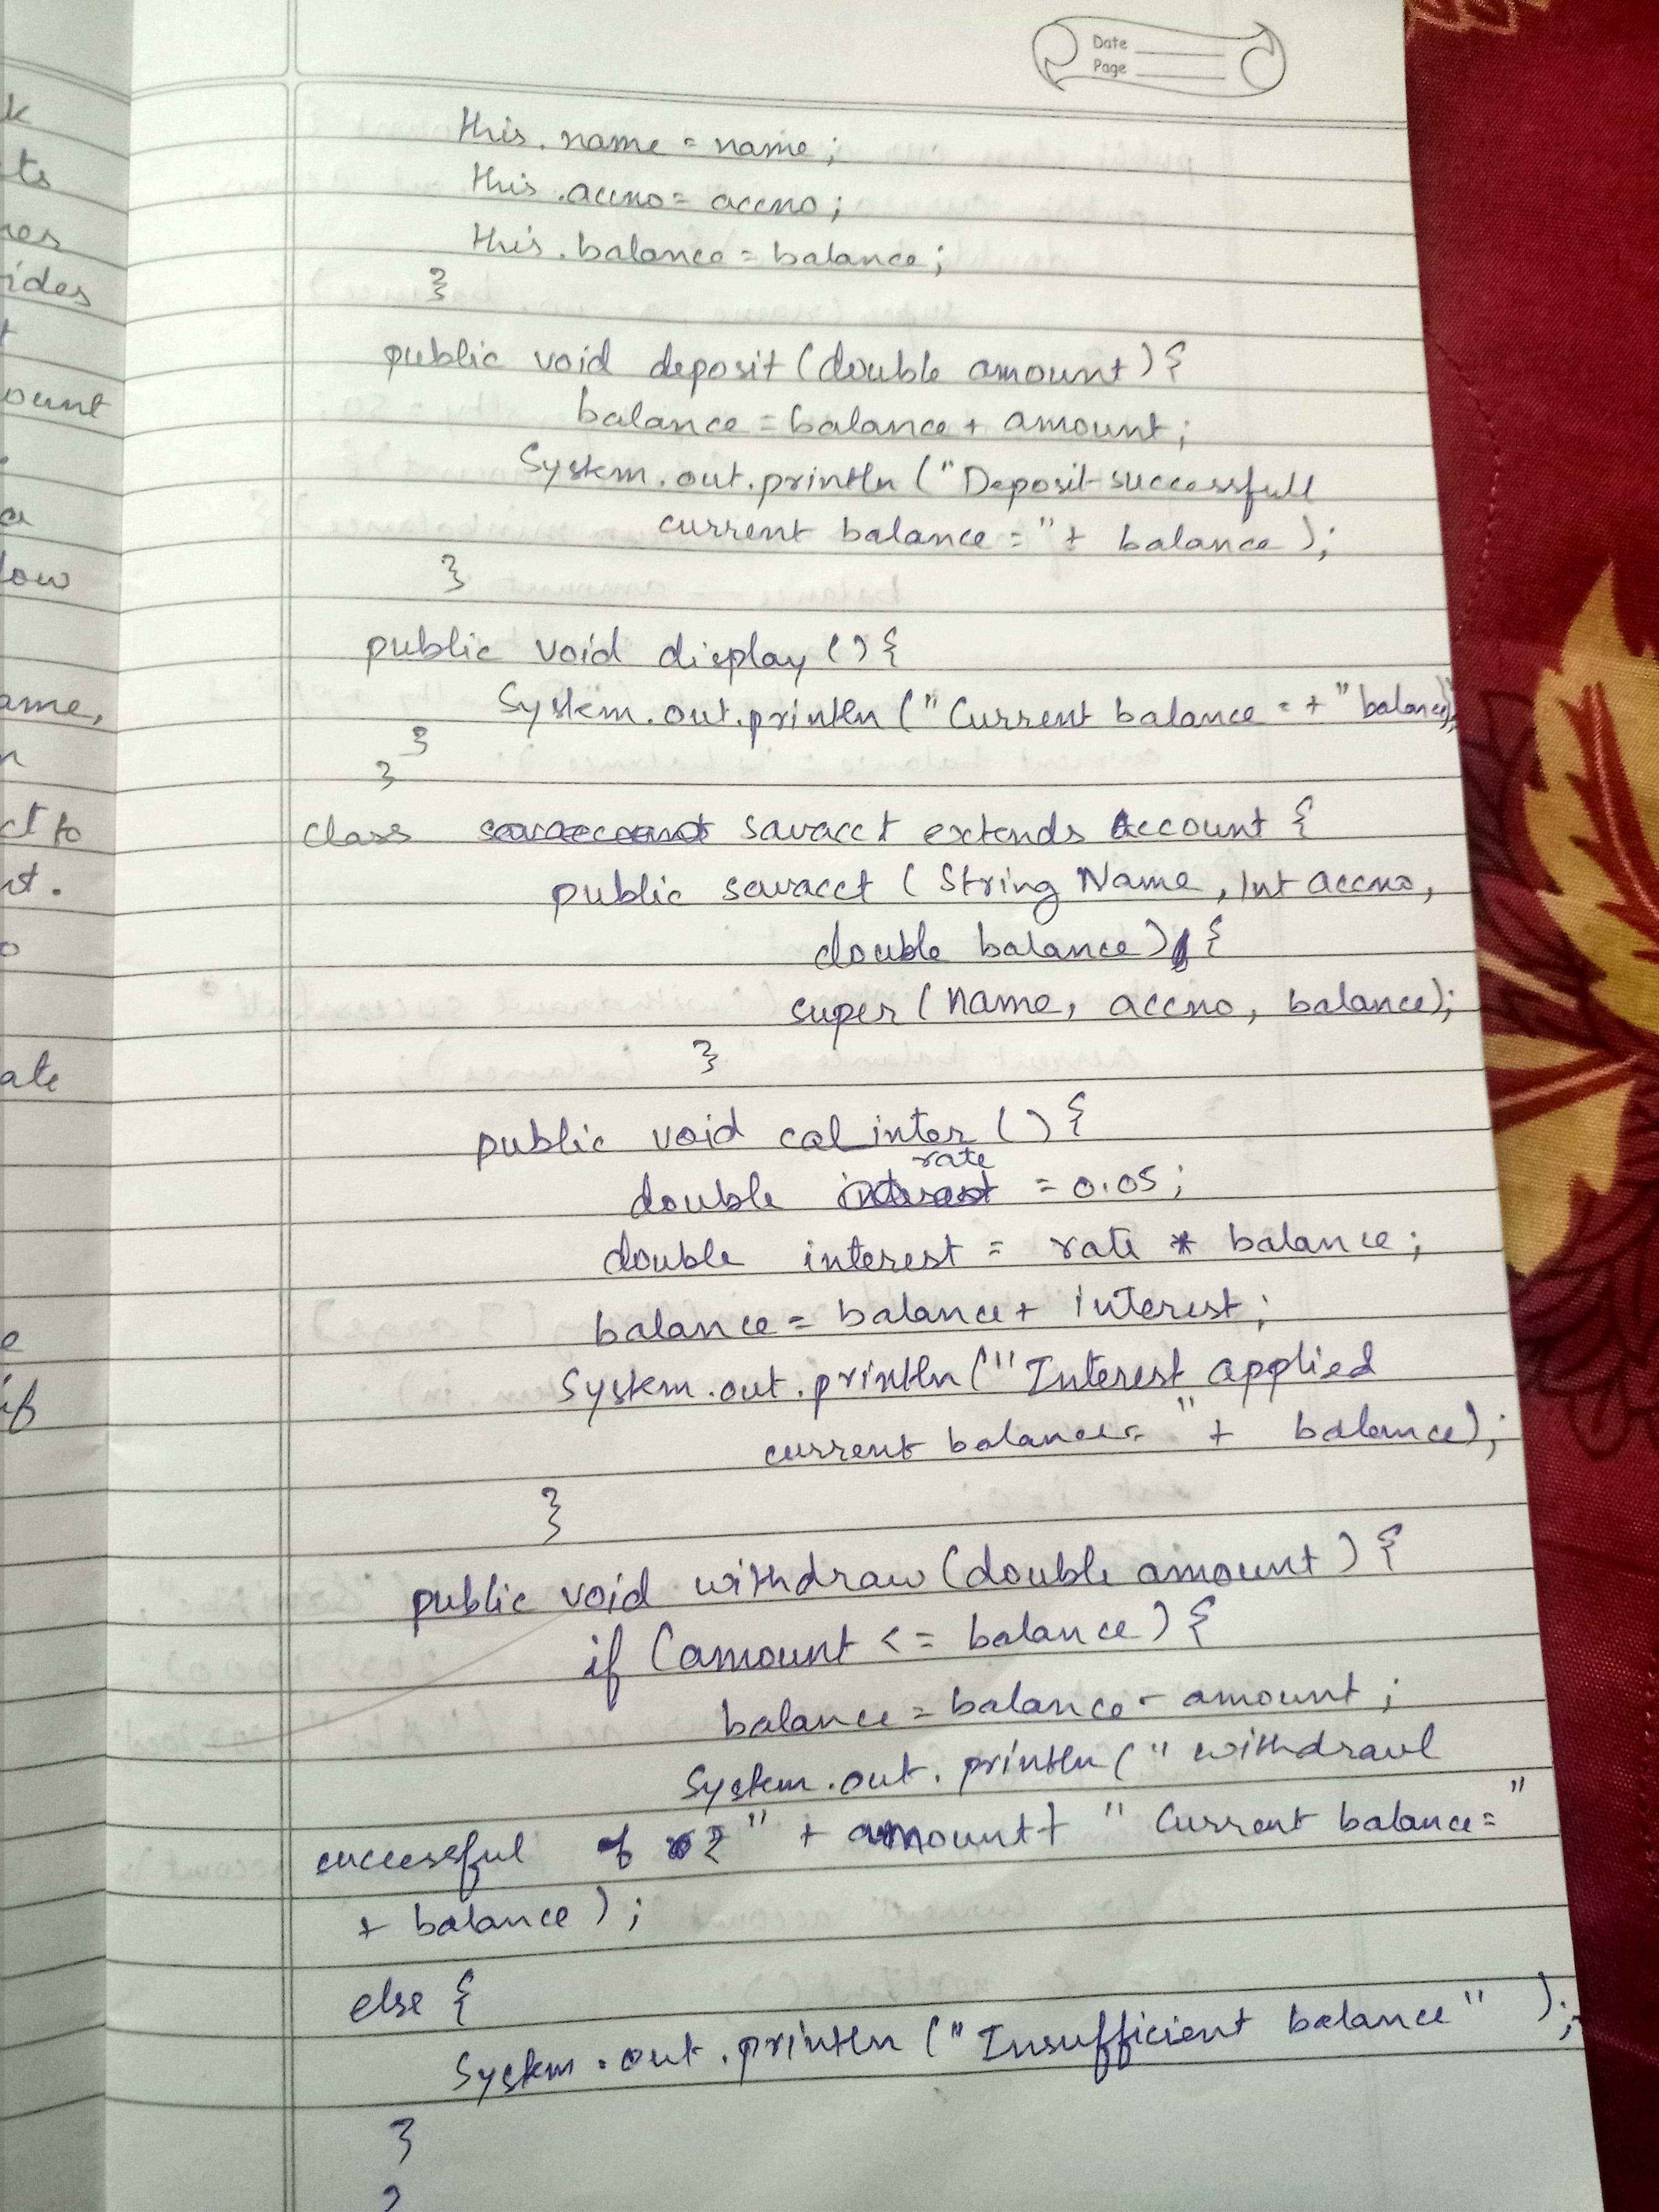 Date
Page
this.name = name;
this.accno = accno;
this.balance = balance;
}
public void deposit (double amount) {
balance = balance + amount;
System.out.println ("Deposit successfull
current balance = " + balance );
}
public void display () {
System.out.println (" Current balance = + " balance);
}
}
class savacct extends Account {
public savacct ( String Name, Int accno,
double balance) {
super ( name, accno, balance);
}
public void cal_inter () {
rate
double = 0.05;
double interest = rate * balance;
balance = balance + interest;
System.out.println (" Interest applied
current balance = " + balance);
}
public void withdraw (double amount) {
if (amount <= balance) {
balance = balance - amount;
System.out.println (" withdrawl
successful of ₹ " + amount + " Current balance = "
+ balance );
else {
System.out.println (" Insufficient balance " );
}
}
k
ts
ides
ount
low
ame,
ct to
nt.
ate
if